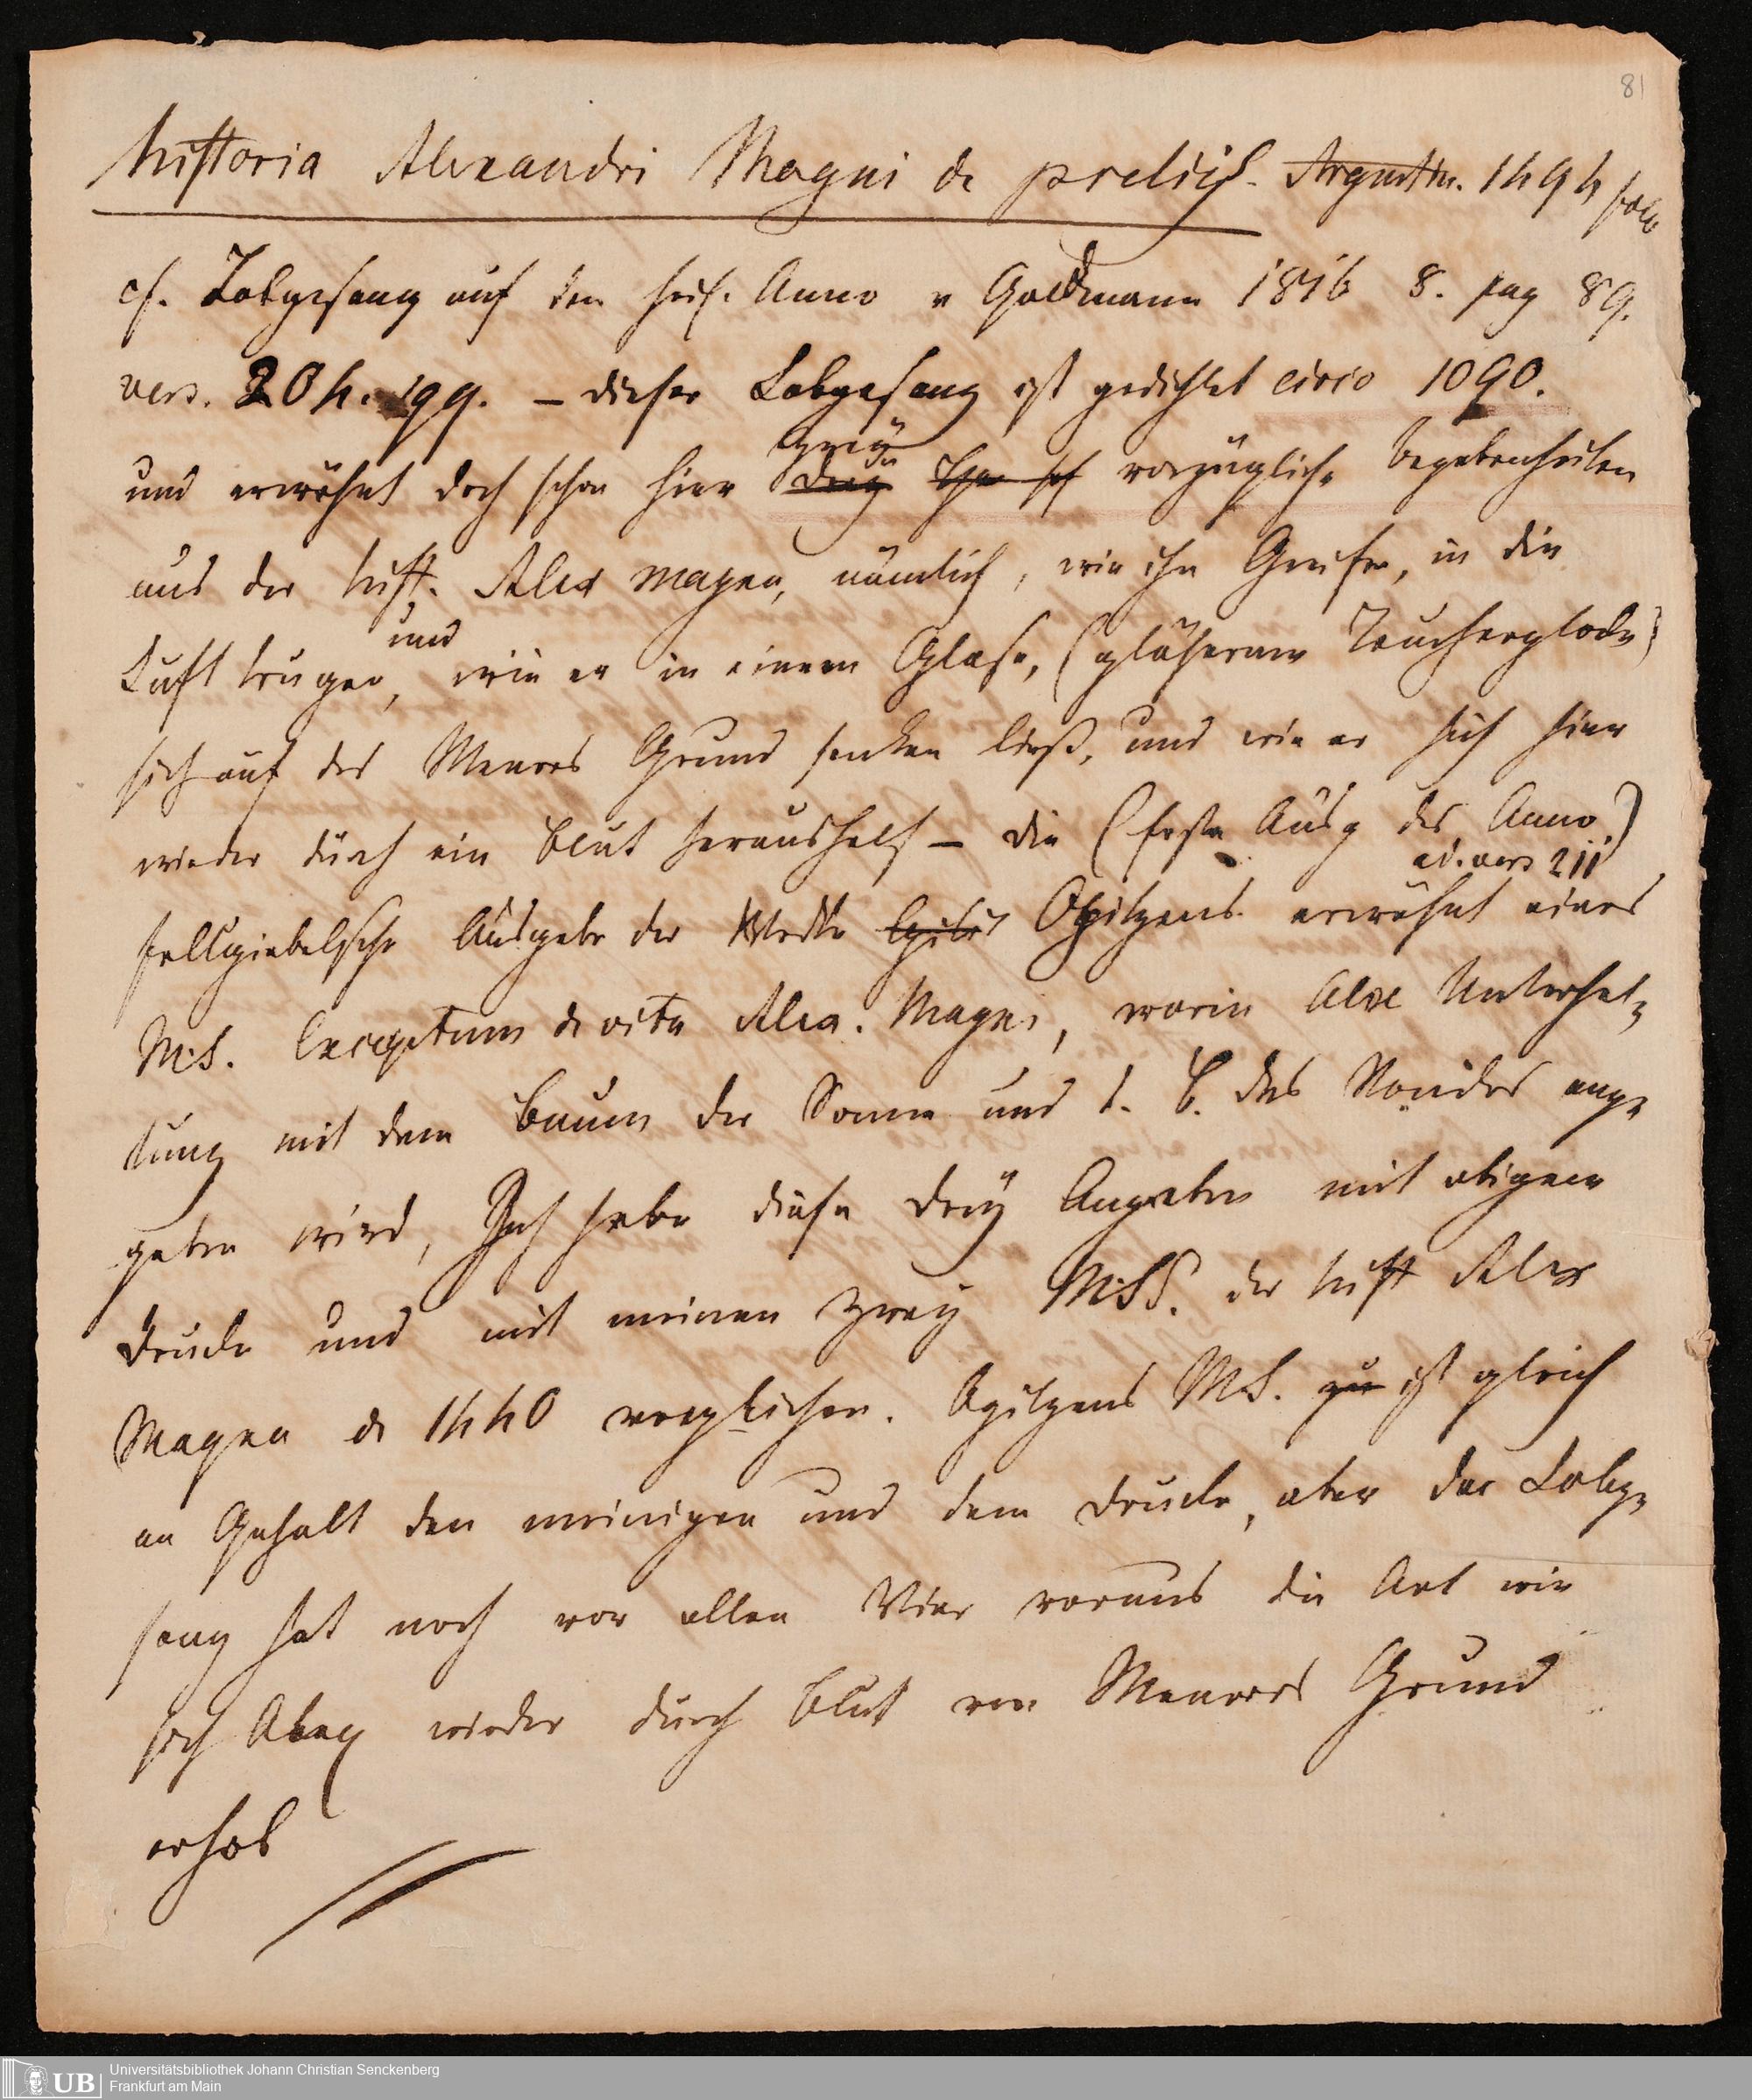 81
Historia Alexandri Magni de preliis. Argentin. 1494 folio
cf. Lobgesang auf den heil. Anno v Goldmann 1816 8. pag 89.
vers. 204. sqq. – dieser Lobgesang ist gedichtet circa 1090.
zwey
und erwähnt doch schon hier drey vorzügliche Begebenheiten
aus der hist. Alex magni, nämlich, wie ihn Greife, in die
und
Luft trugen, wie er in einem Glase, (gläserner Taucherglocke)
sich auf des Meeres Grund senken ließ, und wie er sich hier
wieder durch ein Blut heraushalf – die (erste Ausg des Anno.)
ad. vers 211
fellgiebelsche Ausgabe der Werke Opitzens erwähnt eines
M.S. Excerptum de vita Alex. Magni, worin Alex Unterhal-
tung mit dem Baum der Sonne und d. B. des Mondes ange-
geben wird, Ich habe diese drey Angaben mit obigem
Drucke und mit meinen zwey MSS. der hist Alex
Magni de 1440 verglichen. Opitzens M.S. zu ist gleich
an Gehalt den meinigen und dem Drucke, aber der Lobge-
sang hat noch vor allen Vier voraus die Art wie
sich Alex wieder durch Blut von Meeres Grund
erhob
UB
Universitätsbibliothek Johann Christian Senckenberg
Frankfurt am Main